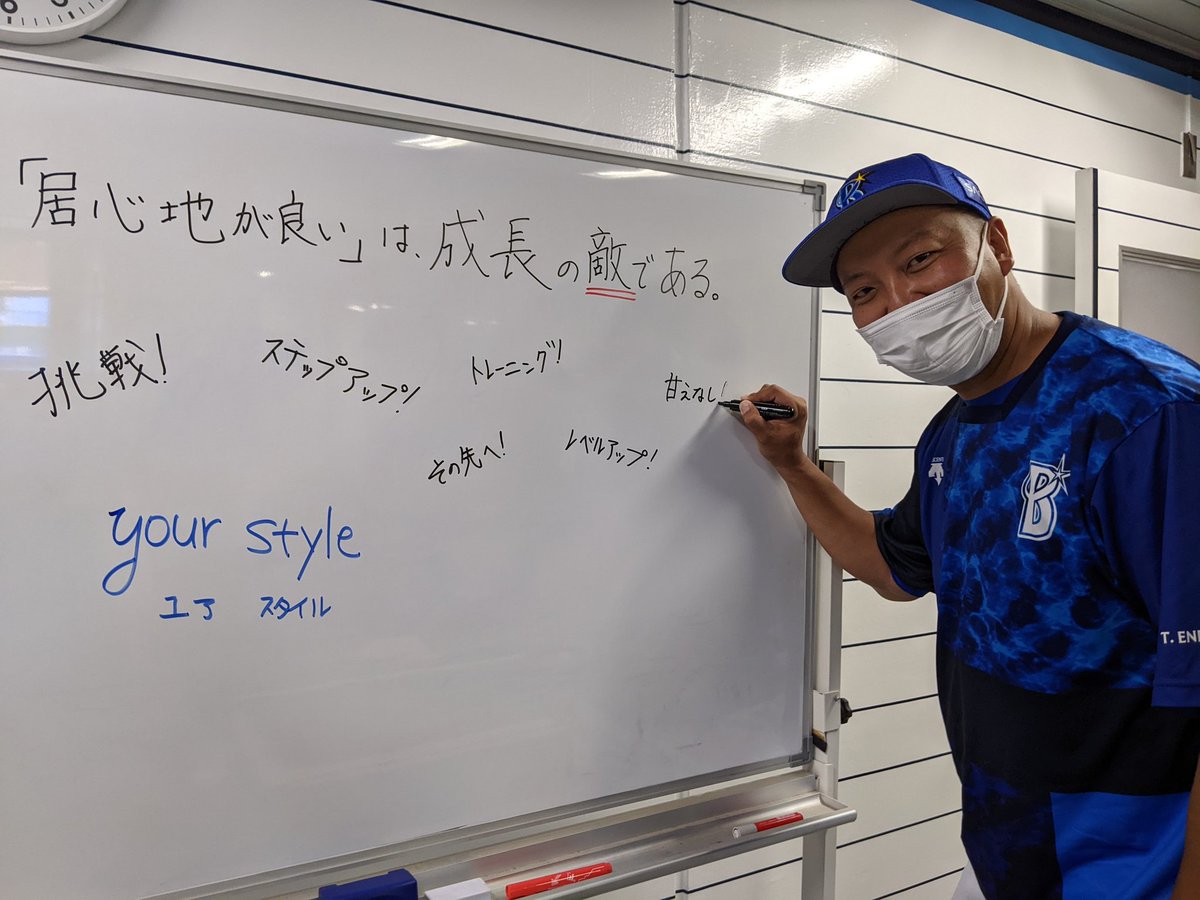 「居心地が良い」は、成長の敵である。
挑戦!
ステップアップ!
トレーニング!
甘えなし!
その先へ!
レベルアップ!
your style
ユア スタイル
B
T. EN